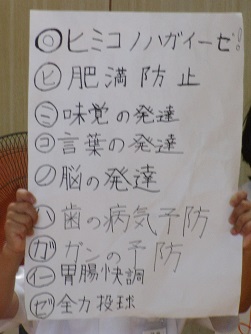 ◎ヒミコノハガイーゼ!
ヒ 肥満防止
ミ 味覚の発達
コ 言葉の発達
ノ 脳の発達
ハ 歯の病気予防
ガ ガンの予防
イー 胃腸快調
ゼ 全力投球